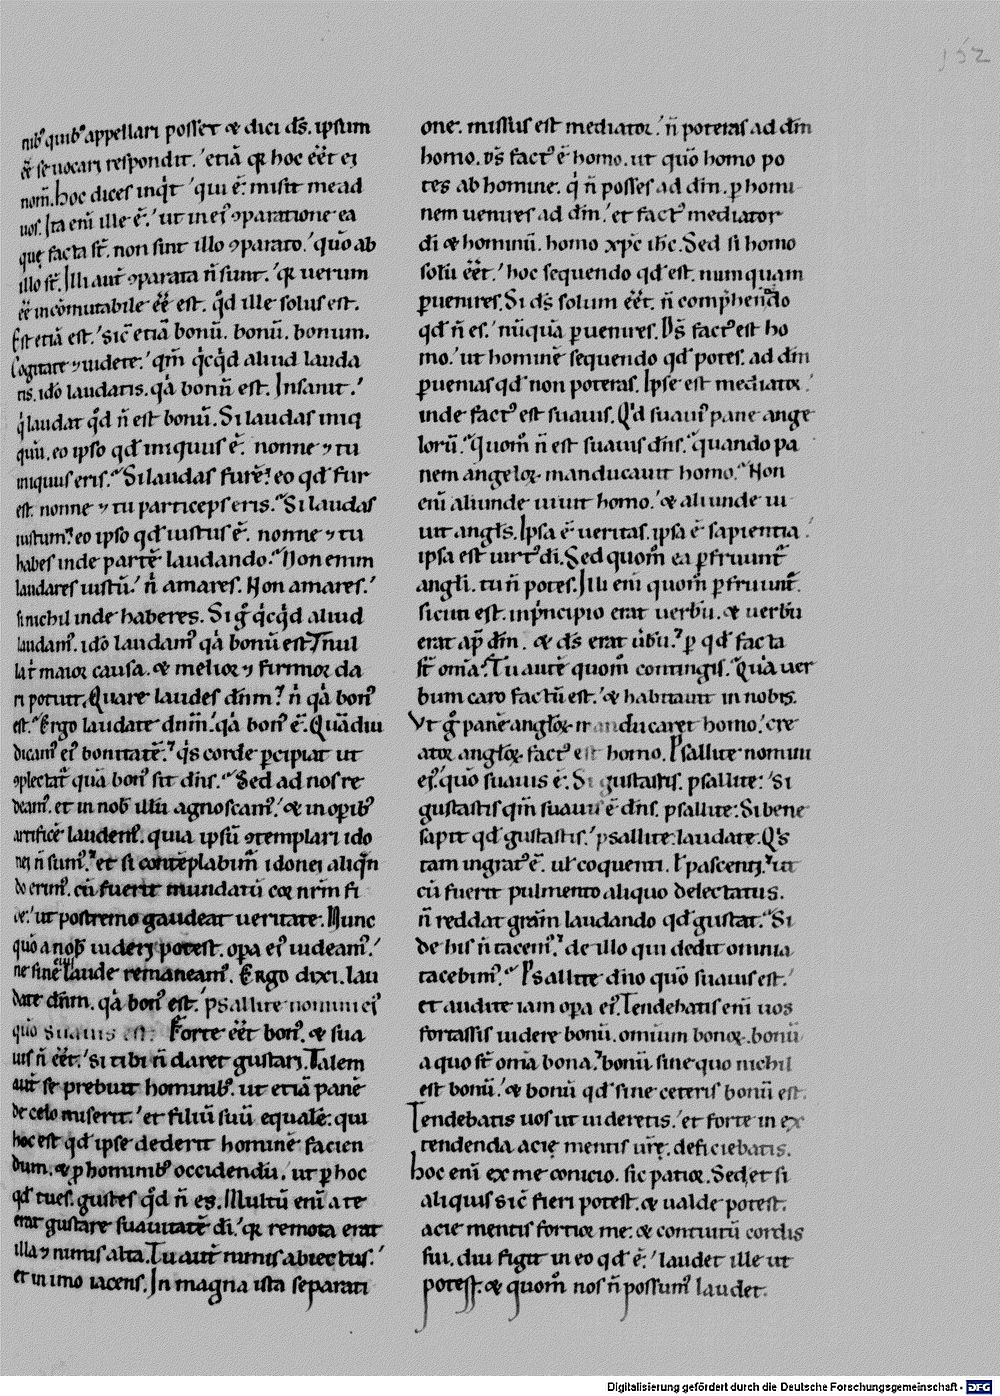 152
nib⁹ quib⁹ appellari posset & dici ds̄. ipsum
ēē se uocari respondit. etiā qr hoc eēt ei
nom̄. Hoc dices inqͥt qui ē. misit me ad
uos. Ita eni ille ē. ut in ei⁹ ꝯparatione ea
que facta st̄. non sint illo ꝯparato. quō ab
illo st̄. Illi aut̄ ꝯparata n̄ sunt. qr uerum
ēē incōmutabile ēē est. qd̄ ille solus est.
Est etiā est. sic̄ etiā bonū. bonū. bonum.
Cogitate ⁊ uidete. qm̄ qͥcqͥd aliud lauda
tis. ido laudatis. qͣa bonū est. Insanit.
qͥ laudat qd̄ n̄ est bonū. Si laudas iniq
quū. eo ipso qd̄ iniquus ē. nonne ⁊ tu
iniquus eris. Si laudas furē. eo qd̄ fur
est. nonne ⁊ tu particeps eris. Si laudas
iustum. eo ipso qd̄ iustus ē. nonne ⁊ tu
habes inde partē laudando. Non enim
laudares iustū. n̄ amares. Non amares.
si nichil inde haberes. Si gͦ qͥcqͥd aliud
laudam⁹. ido laudam⁹ qͣa bonū est. Nul
la t̄ maior causa. & melior ⁊ firmior da
ri potuit. Quare laudes dn̄m. n̄ qͣa bon⁹
est. Ergo laudate dnm̄. qͣa bon⁹ ē. Quādiu
dicam⁹ ei⁹ bonitatē. qͥs corde ꝑcipiat ut
ꝯplectat̄ quā bon⁹ sit dn̄s. Sed ad nos re
deam⁹. et in nob̄ illū agnoscam⁹. & in oꝑib⁹
artificē laudem⁹. quia ipsū ꝯtemplari ido
nei n̄ sum⁹. et si contēplabim̄ idonei aliqn̄
do erim⁹. cū fuerit mundatū cor nrm̄ fi
de. ut postremo gaudeat ueritate. Nunc
quō a nob̄ uideri potest. oꝑa ei⁹ uideam⁹.
ne sine ei⁹ laude remaneam⁹. Ergo dixi. lau
date dn̄m. qͣa bon⁹ est. psallite nomini ei⁹
quō suauis est. Forte eēt bon⁹. & sua
uis n̄ eēt. si tibi n̄ daret gustari. Talem
aut̄ se prebuit hominib⁹. ut etiā panē
de celo miserit. et filiū suū equalē. qui
hoc est qd̄ ipse dederit hominē facien
dum. & ꝓ hominib⁹ occidendū. ut ꝑ hoc
qd̄ tu es. gustes qd̄ n̄ es. Multū eni a te
erat gustare suauitatē di. qr remota erat
illa ⁊ nimis alta. Tu aut̄ nimis abiectus.
et in imo iacens. In magna ista separati
one. missus est mediator. n̄ poteras ad dm̄
homo. ds̄ fact⁹ ē homo. ut quō homo po
tes ab homine. qͥ n̄ posses ad dm̄. ꝑ homi
nem uenires ad dm̄. et fact⁹ mediator
di & hominū. homo xp̄c ih̄c. Sed si homo
solū eēt. hoc sequendo qd̄ est. numquam
ꝑuenires. Si ds̄ solum eēt. n̄ comp̄hendendo
qd̄ n̄ es. nūquā ꝑuenires. Ds̄ fact⁹ est ho
mo. ut hominē sequendo qd̄ potes. ad dm̄
ꝑuenias qd̄ non poteras. Ipse est mediator.
inde fact⁹ est suauis. Qͥd suaui⁹ pane ange
lorū. Quom̄ n̄ est suauis dn̄s. quando pa
nem angelorꝝ manducauit homo. Non
eni aliunde uiuit homo. & aliunde ui
uit angl̄s. Ipsa ē ueritas. ipsa ē sapientia.
ipsa est uirt⁹ di. Sed quom̄ ea ꝑfruunt̄
angl̄i. tu n̄ potes. Illi eni quom̄ ꝑfruunt̄.
sicuti est. inpͥncipio erat uerbū. & uerbū
erat ap̄ dm̄. & ds̄ erat ūbū. ꝑ qd̄ facta
st̄ omīa. Tu autē quom̄ contingis. Quia uer
bum caro factū est. & habitauit in nobis.
Vt gͦ panē angl̄oꝝ manducaret homo. cre
ator angl̄oꝝ fact⁹ est homo. Psallite nomini
ei⁹. quō suauis ē. Si gustastis. psallite. Si
gustastis qm̄ suauis ē dn̄s. psallite. Si bene
sapit qd̄ gustastis. psallite. laudate. Qͥs
tam ingrat⁹ ē. ul̄ coquenti. l̄ pascenti. ut
cū fuerit pulmento aliquo delectatus.
n̄ reddat gram̄ laudando qd̄ gustat. Si
de his n̄ tacem⁹. de illo qui dedit omnia
tacebim⁹. Psallite dn̄o quō suauis est.
et audite iam oꝑa ei⁹. Tendebatis eni uos
fortassis uidere bonū. omium bonoꝝ. bonū
a quo st̄ omīa bona. bonū sine quo nichil
est bonū. & bonū qd̄ sine ceteris bonū est.
Tendebatis uos ut uideretis. et forte in ex
tendenda acie mentis ur̄e. deficiebatis.
Hoc eni ex me conicio. sic patior. Sed et si
aliquis sic̄ fieri potest. & ualde potest.
acie mentis fortior me. & contuitū cordis
sui. diu figit in eo qd̄ ē. laudet ille ut
potest. & quom̄ nos n̄ possum⁹ laudet.
Digitalisierung gefördert durch die Deutsche Forschungsgemeinschaft - DFG